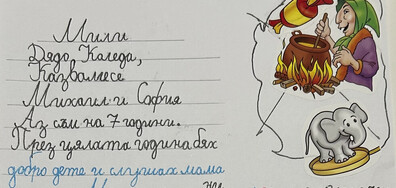 Мили
Дядо Коледа,
Казвамесе
Михаил и София
Аз съм на 7 години.
През цялата година бях
добро дете и слушах мама